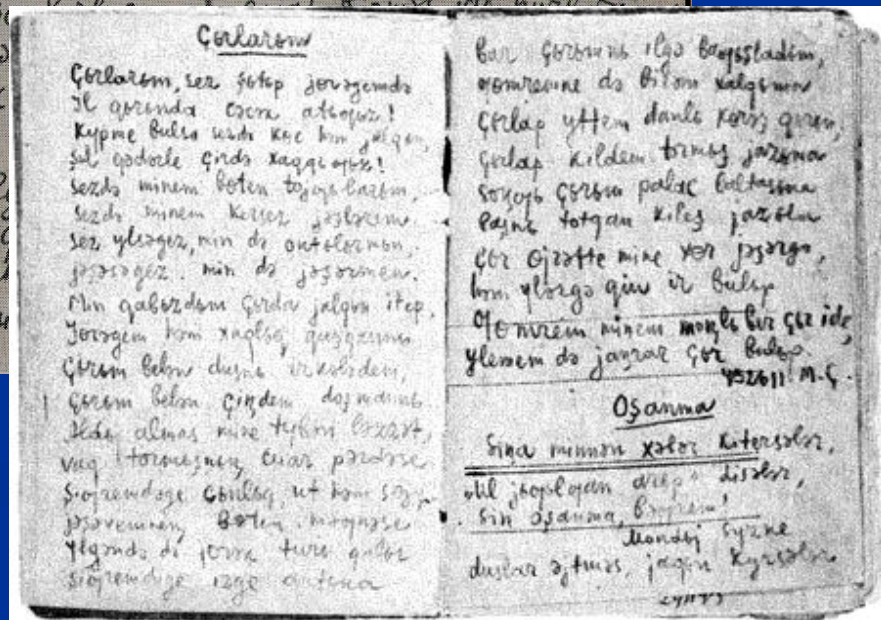 Çьrlarьm
Çьrlarьm, sez şьtьp jɵrəgemdə
Il qьrьnda cəcək atьƣьz!
Kypme bulsa sezdə kɵc həm jalqьn,
Şul qədərle çirdə xaqqьƣьz!
Sezdə minem bɵten tojƣьlarьm,
Sezdə minem kersez jəşlərem.
Sez ylsəgez, min də onьtьlьrmьn,
Jəşəsəgez, min də jəşərmen.
Min qabьzdьm çьrda jalqьn itep,
Jɵrəgem həm xaqlьq quşqannь.
Çьrьm belən dusnь irkələdem,
Çьrьm belən çiŋdem doşmannь.
Aldьj almas mine tybən ləzzət,
Vaq tormьşnьŋ cuar pərdəse
Şiƣremdəge cьnlьq, ut həm sɵjy
Jəşəvemneŋ bɵten məƣnəse
Ylgəndə də jɵrək turь qalьr
Şiƣremdəge izge antьna
Bar çьrьmnь ilgə baƣьşladьm,
Ƣomremne də birəm xalqьma
Çьrlap yttem danlь kɵrəş qьrьn,
Çьrlap kildem tormьş jazьna
Soŋƣь çьrьm palac baltasьna
Başnь totqan kileş jazьla
Çьr ɵjrətte mine xɵr jəşərgə,
həm ylərgə qьju ir bulьp
Ƣomrem minem moŋlь ber çьr ide,
Ylemem də jaŋrar çьr bulьp.
M.Ç.
Oşanma
Siŋa minnən xəbər kitersələr,
"Ul jьƣьlƣan arьp" disələr,
Sin oşanma, bəƣrem!
Mondьj syzne
duslar əjtməs, jaqьn kyrsələr